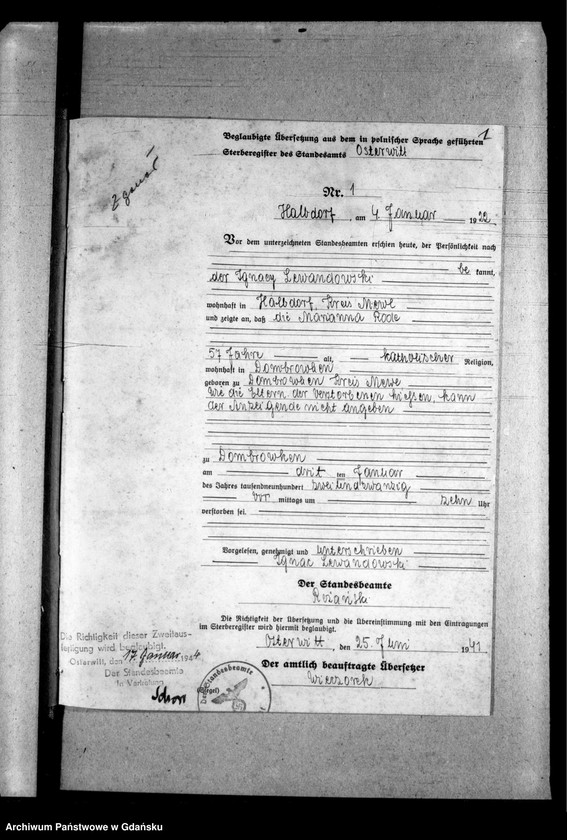 1
Beglaubigte Übersetzung aus dem in polnischer Sprache geführten
Sterberegister des Standesamts Osterwitt
Nr. 1
Halbdorf, am 4 Januar 1922.
Vor dem unterzeichneten Standesbeamten erschien heute, der Persönlichkeit nach
be kannt,
der Ignacy Lewandowski
wohnhaft in Halbdorf, Kreis Mewe
und zeigte an, daß die Marianna Rode
57 Jahre alt, katholischer Religion,
wohnhaft in Dombrowken
geboren zu Dombrowken Kreis Mewe
Wie die Eltern der Verstorbenen hiessen, kann
der Anzeigende nicht angeben
zu Dombrowken
am drit ten Januar
des Jahres tausendneunhundert zweiundzwanzig
vor mittags um zehn Uhr
verstorben sei.
Vorgelesen, genehmigt und unterschrieben
Ignac Lewandowski
Der Standesbeamte
Rożański
Die Richtigkeit der Übersetzung und die Übereinstimmung mit den Eintragungen
im Sterberegister wird hiermit beglaubigt.
Osterwitt, den 25. Juni 1941
Der amtlich beauftragte Übersetzer
Wieczorek
(Siegel)
Der Standesbeamte
Die Richtigkeit dieser Zweitaus-
fertigung wird beglaubigt.
Osterwitt, den 17 Januar 1944
Der Standesbeamte
In Vertretung
Archiwum Państwowe w Gdańsku